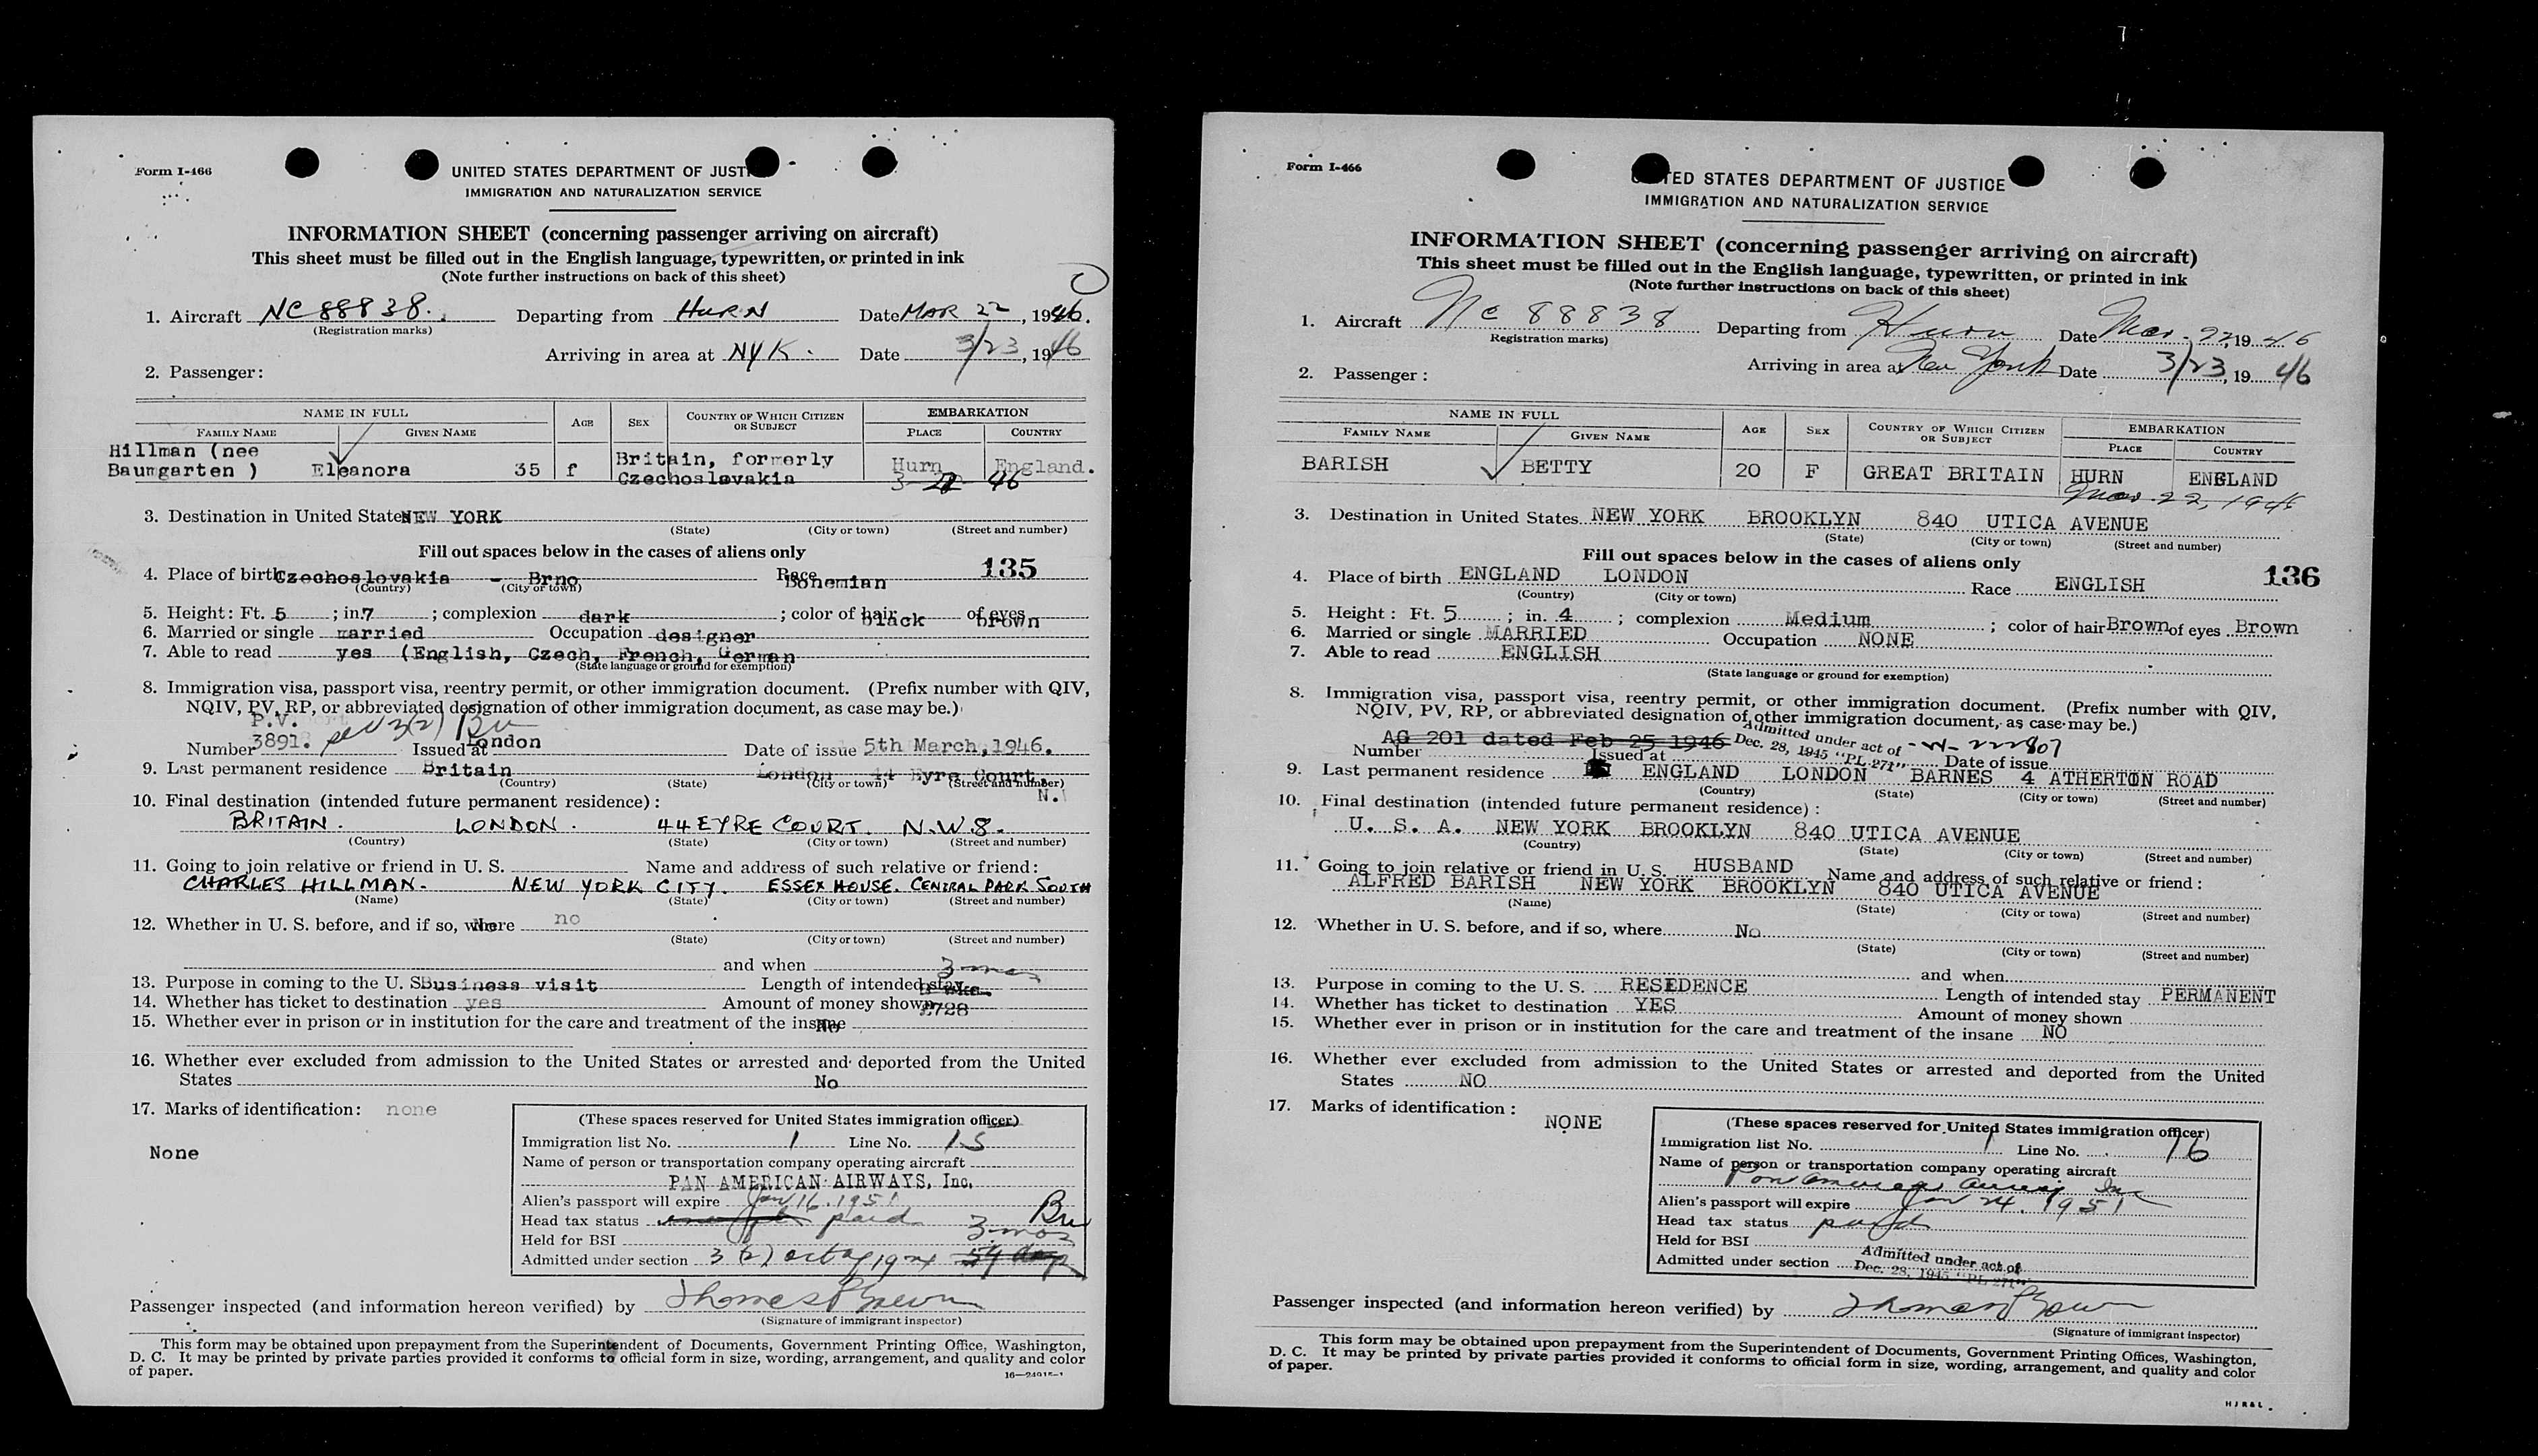 Form I-466
UNITED STATES DEPARTMENT OF JUST
IMMIGRATION AND NATURALIZATION SERVICE
INFORMATION SHEET (concerning passenger arriving on aircraft)
This sheet must be filled out in the English language, typewritten, or printed in ink
(Note further instructions on back of this sheet)
1. Aircraft NC 88838. Departing from HURN Date MAR 22, 1946.
(Registration marks)
Arriving in area at NYK. Date 3/23, 1946
2. Passenger:
NAME IN FULL AGE SEX COUNTRY OF WHICH CITIZEN OR SUBJECT EMBARKATION
FAMILY NAME GIVEN NAME PLACE COUNTRY
Hillman (nee Britain, formerly Hurn England.
Baumgarten ) Eleanora 35 f Czechoslovakia 3-22 46
3. Destination in United States NEW YORK
(State) (City or town) (Street and number)
Fill out spaces below in the cases of aliens only
135
4. Place of birth Czechoslovakia - Brno Race Bohemian
(Country) (City or town)
5. Height: Ft. 5; in. 7; complexion dark; color of hair black of eyes brown
6. Married or single married Occupation designer
7. Able to read yes (English, Czech, French, German
(State language or ground for exemption)
8. Immigration visa, passport visa, reentry permit, or other immigration document. (Prefix number with QIV,
NQIV, PV, RP, or abbreviated designation of other immigration document, as case may be.)
P.V. 3(2) Bu
Number 3891. Issued at London Date of issue 5th March, 1946.
9. Last permanent residence Britain London 44 Eyre Court. N.
(Country) (State) (City or town) (Street and number)
10. Final destination (intended future permanent residence):
BRITAIN. LONDON. 44 EYRE COURT. N.W.8.
(Country) (State) (City or town) (Street and number)
11. Going to join relative or friend in U. S. Name and address of such relative or friend:
CHARLES HILLMAN. NEW YORK CITY. ESSEX HOUSE. CENTRAL PARK SOUTH
(Name) (State) (City or town) (Street and number)
12. Whether in U. S. before, and if so, where No no
(State) (City or town) (Street and number)
and when
3 mos
13. Purpose in coming to the U. S. Business visit Length of intended stay wks.
14. Whether has ticket to destination yes Amount of money shown £728
15. Whether ever in prison or in institution for the care and treatment of the insane No
16. Whether ever excluded from admission to the United States or arrested and deported from the United
States No
17. Marks of identification: none
None
(These spaces reserved for United States immigration officer)
Immigration list No. 1 Line No. 15
Name of person or transportation company operating aircraft
PAN AMERICAN AIRWAYS, Inc.
Alien's passport will expire Jan 16. 1951
Head tax status paid Bu
Held for BSI 3 mos
Admitted under section 3 (2) act of 1924
Passenger inspected (and information hereon verified) by
(Signature of immigrant inspector)
This form may be obtained upon prepayment from the Superintendent of Documents, Government Printing Office, Washington,
D. C. It may be printed by private parties provided it conforms to official form in size, wording, arrangement, and quality and color
of paper.
Form I-466
TED STATES DEPARTMENT OF JUSTICE
IMMIGRATION AND NATURALIZATION SERVICE
INFORMATION SHEET (concerning passenger arriving on aircraft)
This sheet must be filled out in the English language, typewritten, or printed in ink
(Note further instructions on back of this sheet)
1. Aircraft Nc 88838 Departing from Hurn Date Mar. 22, 1946
Registration marks)
Arriving in area at New York Date 3/23, 1946
2. Passenger:
NAME IN FULL AGE SEX COUNTRY OF WHICH CITIZEN OR SUBJECT EMBARKATION
FAMILY NAME GIVEN NAME PLACE COUNTRY
BARISH BETTY 20 F GREAT BRITAIN HURN ENGLAND
Mar. 22, 1946
3. Destination in United States NEW YORK BROOKLYN 840 UTICA AVENUE
(State) (City or town) (Street and number)
Fill out spaces below in the cases of aliens only
136
4. Place of birth ENGLAND LONDON Race ENGLISH
(Country) (City or town)
5. Height: Ft. 5; in. 4; complexion Medium; color of hair Brown of eyes Brown
6. Married or single MARRIED Occupation NONE
7. Able to read ENGLISH
(State language or ground for exemption)
8. Immigration visa, passport visa, reentry permit, or other immigration document. (Prefix number with QIV,
NQIV, PV, RP, or abbreviated designation of other immigration document, as case may be.)
AG 201 dated Feb 25 1946 Admitted under act of Dec. 28, 1945 "PL 271"
Number Issued at Date of issue
9. Last permanent residence ENGLAND LONDON BARNES 4 ATHERTON ROAD
(Country) (State) (City or town) (Street and number)
10. Final destination (intended future permanent residence):
U. S. A. NEW YORK BROOKLYN 840 UTICA AVENUE
(Country) (State) (City or town) (Street and number)
11. Going to join relative or friend in U. S. HUSBAND Name and address of such relative or friend:
ALFRED BARISH NEW YORK BROOKLYN 840 UTICA AVENUE
(Name) (State) (City or town) (Street and number)
12. Whether in U. S. before, and if so, where No
(State) (City or town) (Street and number)
and when
13. Purpose in coming to the U. S. RESEDENCE Length of intended stay PERMANENT
14. Whether has ticket to destination YES Amount of money shown
15. Whether ever in prison or in institution for the care and treatment of the insane NO
16. Whether ever excluded from admission to the United States or arrested and deported from the United
States NO
17. Marks of identification:
NONE
(These spaces reserved for United States immigration officer)
Immigration list No. 1 Line No. 16
Name of person or transportation company operating aircraft
Pan American Airways Inc
Alien's passport will expire Jan 24. 1951
Head tax status paid
Held for BSI
Admitted under section Admitted under act of Dec. 28, 1945 "PL 271"
Passenger inspected (and information hereon verified) by
(Signature of immigrant inspector)
This form may be obtained upon prepayment from the Superintendent of Documents, Government Printing Offices, Washington,
D. C. It may be printed by private parties provided it conforms to official form in size, wording, arrangement, and quality and color
of paper.
H J R & L